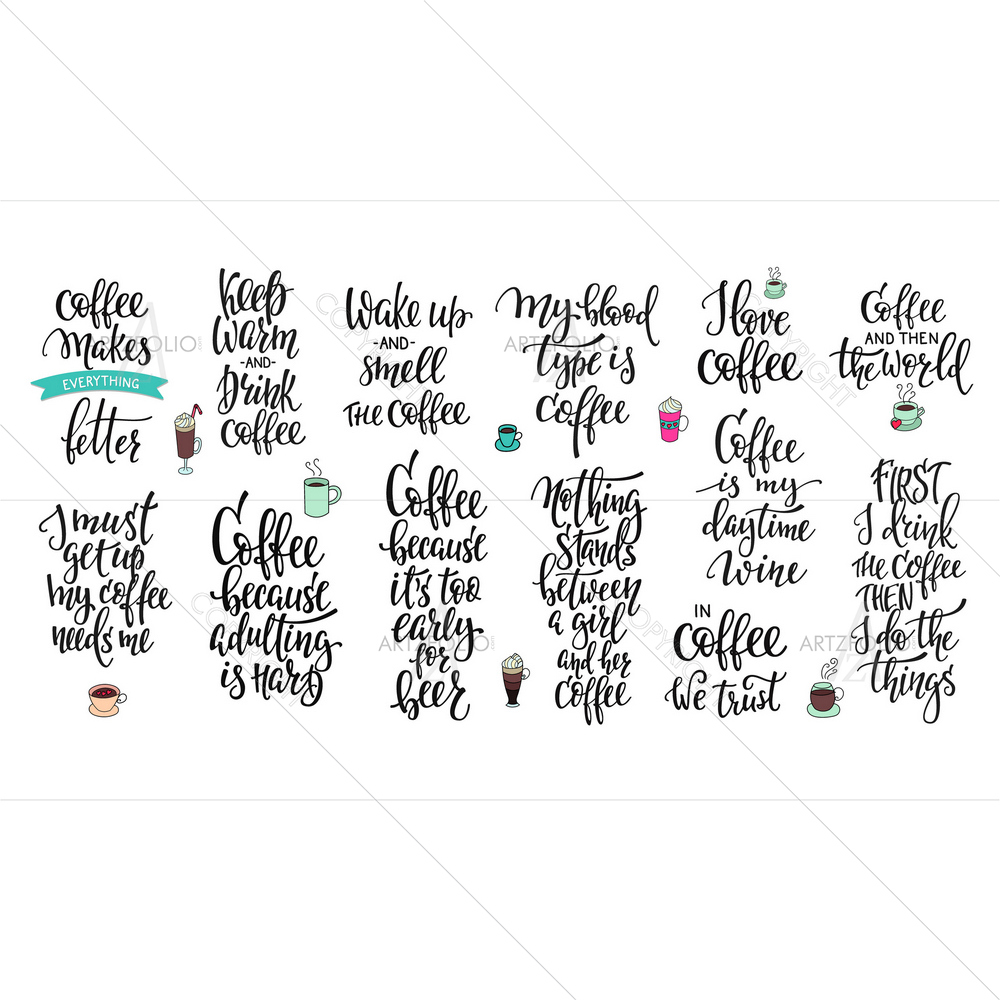 coffee
makes
EVERYTHING
better
Keep
warm
-AND-
Drink
coffee
Wake up
-AND-
smell
THE Coffee
My blood
type is
Coffee
I love
coffee
Coffee
AND THEN
the world
I must
get up
my coffee
needs me
Coffee
because
adulting
is hard
Coffee
because
it's too
early
for
beer
Nothing
stands
between
a girl
and her
coffee
Coffee
is my
daytime
wine
IN
coffee
We trust
FIRST
I drink
THE Coffee
THEN
I do the
things
ARTZFOLIO
ARTZFOLIO
ARTZFOLIO
ARTZFOLIO
COPYRIGHT
COPYRIGHT
COPYRIGHT
COPYRIGHT